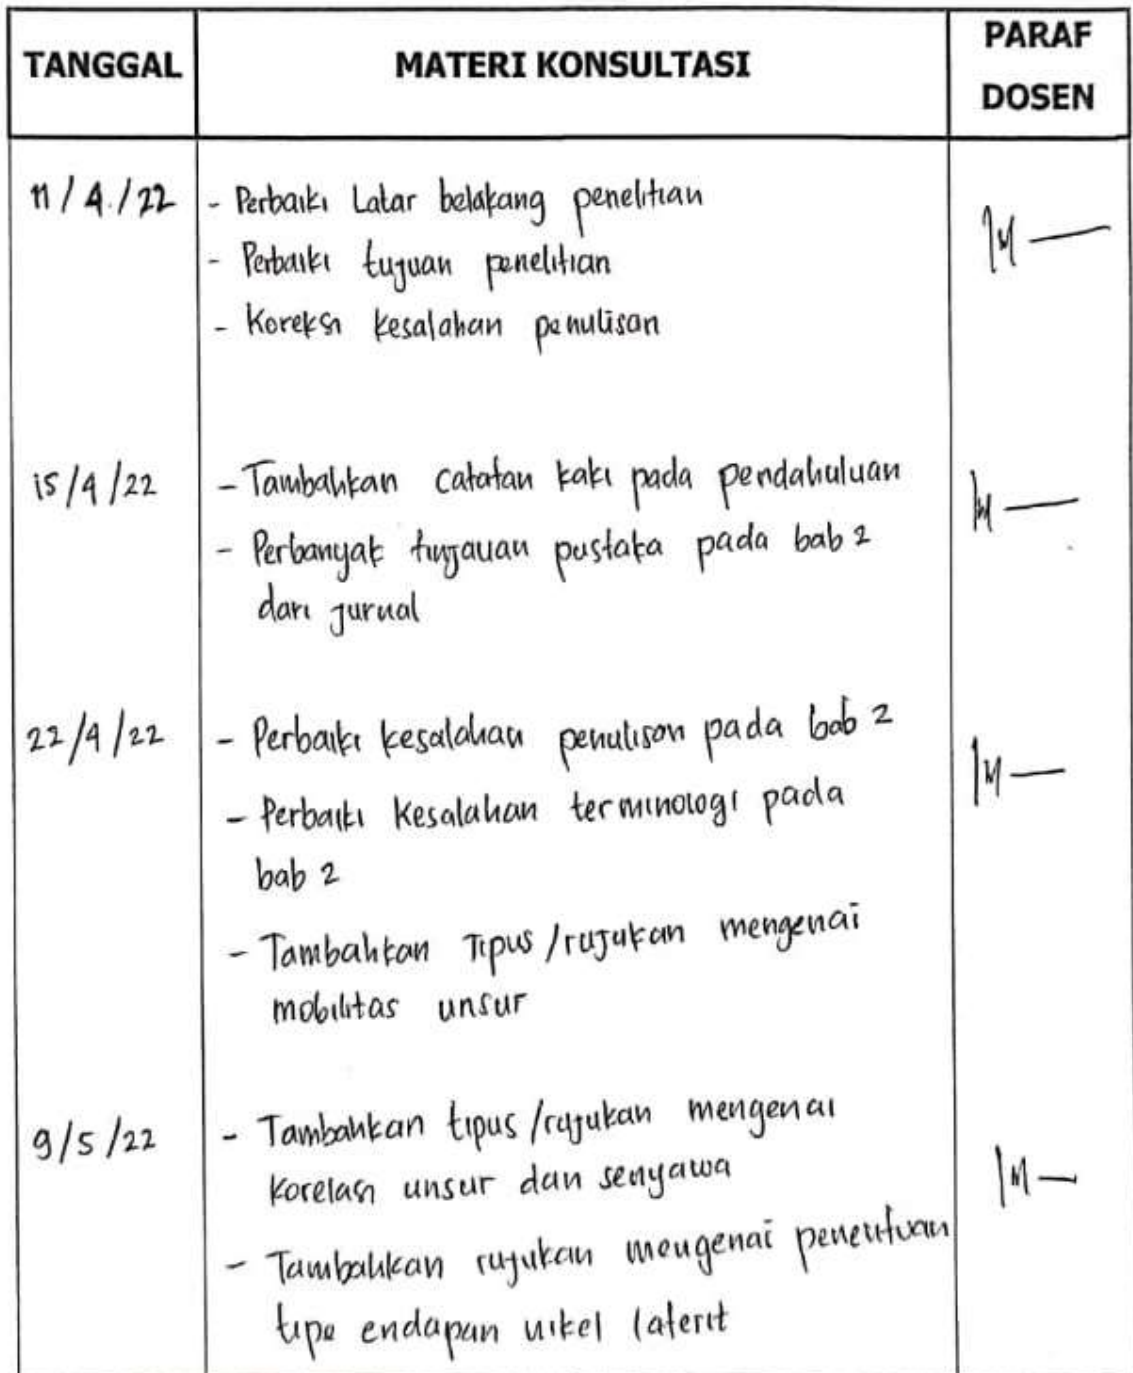 TANGGAL MATERI KONSULTASI PARAF
DOSEN
11/4/22 - Perbaiki Latar belakang penelitian
- Perbaiki tujuan penelitian
- Koreksi kesalahan penulisan
15/4/22 - Tambahkan catatan kaki pada pendahuluan
- Perbanyak tinjauan pustaka pada bab 2
dari jurnal
22/4/22 - Perbaiki kesalahan penulisan pada bab 2
- Perbaiki Kesalahan terminologi pada
bab 2
- Tambahkan Tipus/rujukan mengenai
mobilitas unsur
9/5/22 - Tambahkan tipus/rujukan mengenai
korelasi unsur dan senyawa
- Tambahkan rujukan mengenai penentuan
tipe endapan nikel laterit